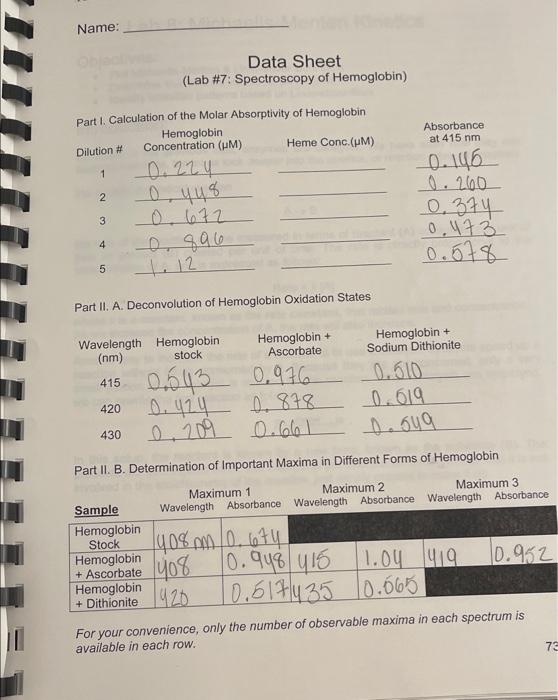 Name:
Data Sheet
(Lab #7: Spectroscopy of Hemoglobin)
Part I. Calculation of the Molar Absorptivity of Hemoglobin
Dilution # Hemoglobin Concentration (µM) Heme Conc.(µM) Absorbance at 415 nm
1 0.224 0.146
2 0.448 0.260
3 0.672 0.374
4 0.896 0.473
5 1.12 0.578
Part II. A. Deconvolution of Hemoglobin Oxidation States
Wavelength (nm) Hemoglobin stock Hemoglobin + Ascorbate Hemoglobin + Sodium Dithionite
415 0.543 0.976 0.510
420 0.424 0.878 0.619
430 0.209 0.661 0.549
Part II. B. Determination of Important Maxima in Different Forms of Hemoglobin
Maximum 1 Maximum 2 Maximum 3
Sample Wavelength Absorbance Wavelength Absorbance Wavelength Absorbance
Hemoglobin Stock 408 0.674
Hemoglobin + Ascorbate 408 0.948 415 1.04 419 0.952
Hemoglobin + Dithionite 420 0.517 435 0.565
For your convenience, only the number of observable maxima in each spectrum is
available in each row.
73